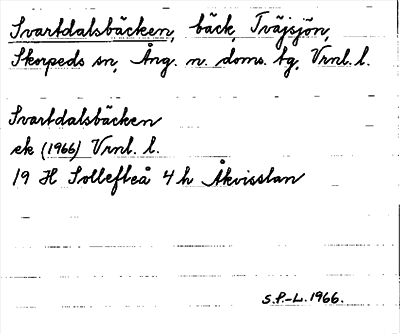 Svartdalsbäcken, bäck, Tväjsjön,
Skorpeds sn, Ång. n. doms. tg, Vrnl. l.
Svartdalsbäcken
ek (1966) Vrnl. l.
19 H Sollefteå 4 h Åkvisslan
S.P.-L. 1966.